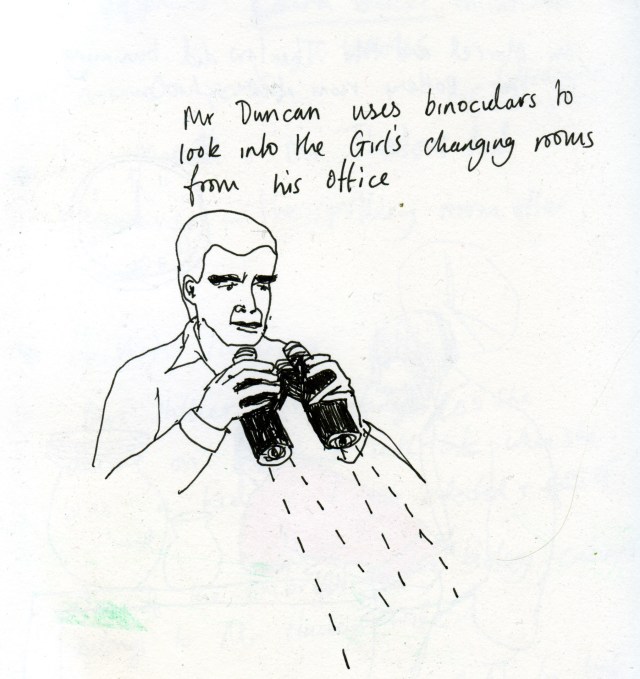 Mr Duncan uses binoculars to
look into the Girl's changing rooms
from his office